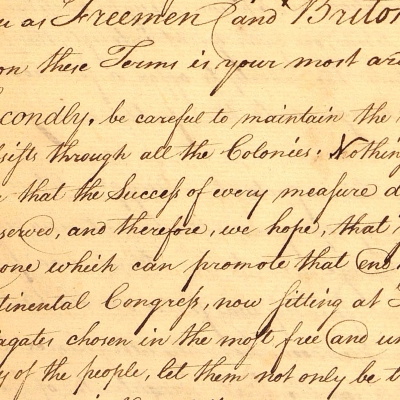 u as Freemen (and Briton
on these Terms is your most ar
condly. be careful to maintain the
sists through all the Colonies. Nothing
that the Success of every measure d
served, and therefore, we hope, that
one which can promote that end.
tinental Congress, now sitting at
legates chosen in the most free (and un
y of the people, let them not only be t